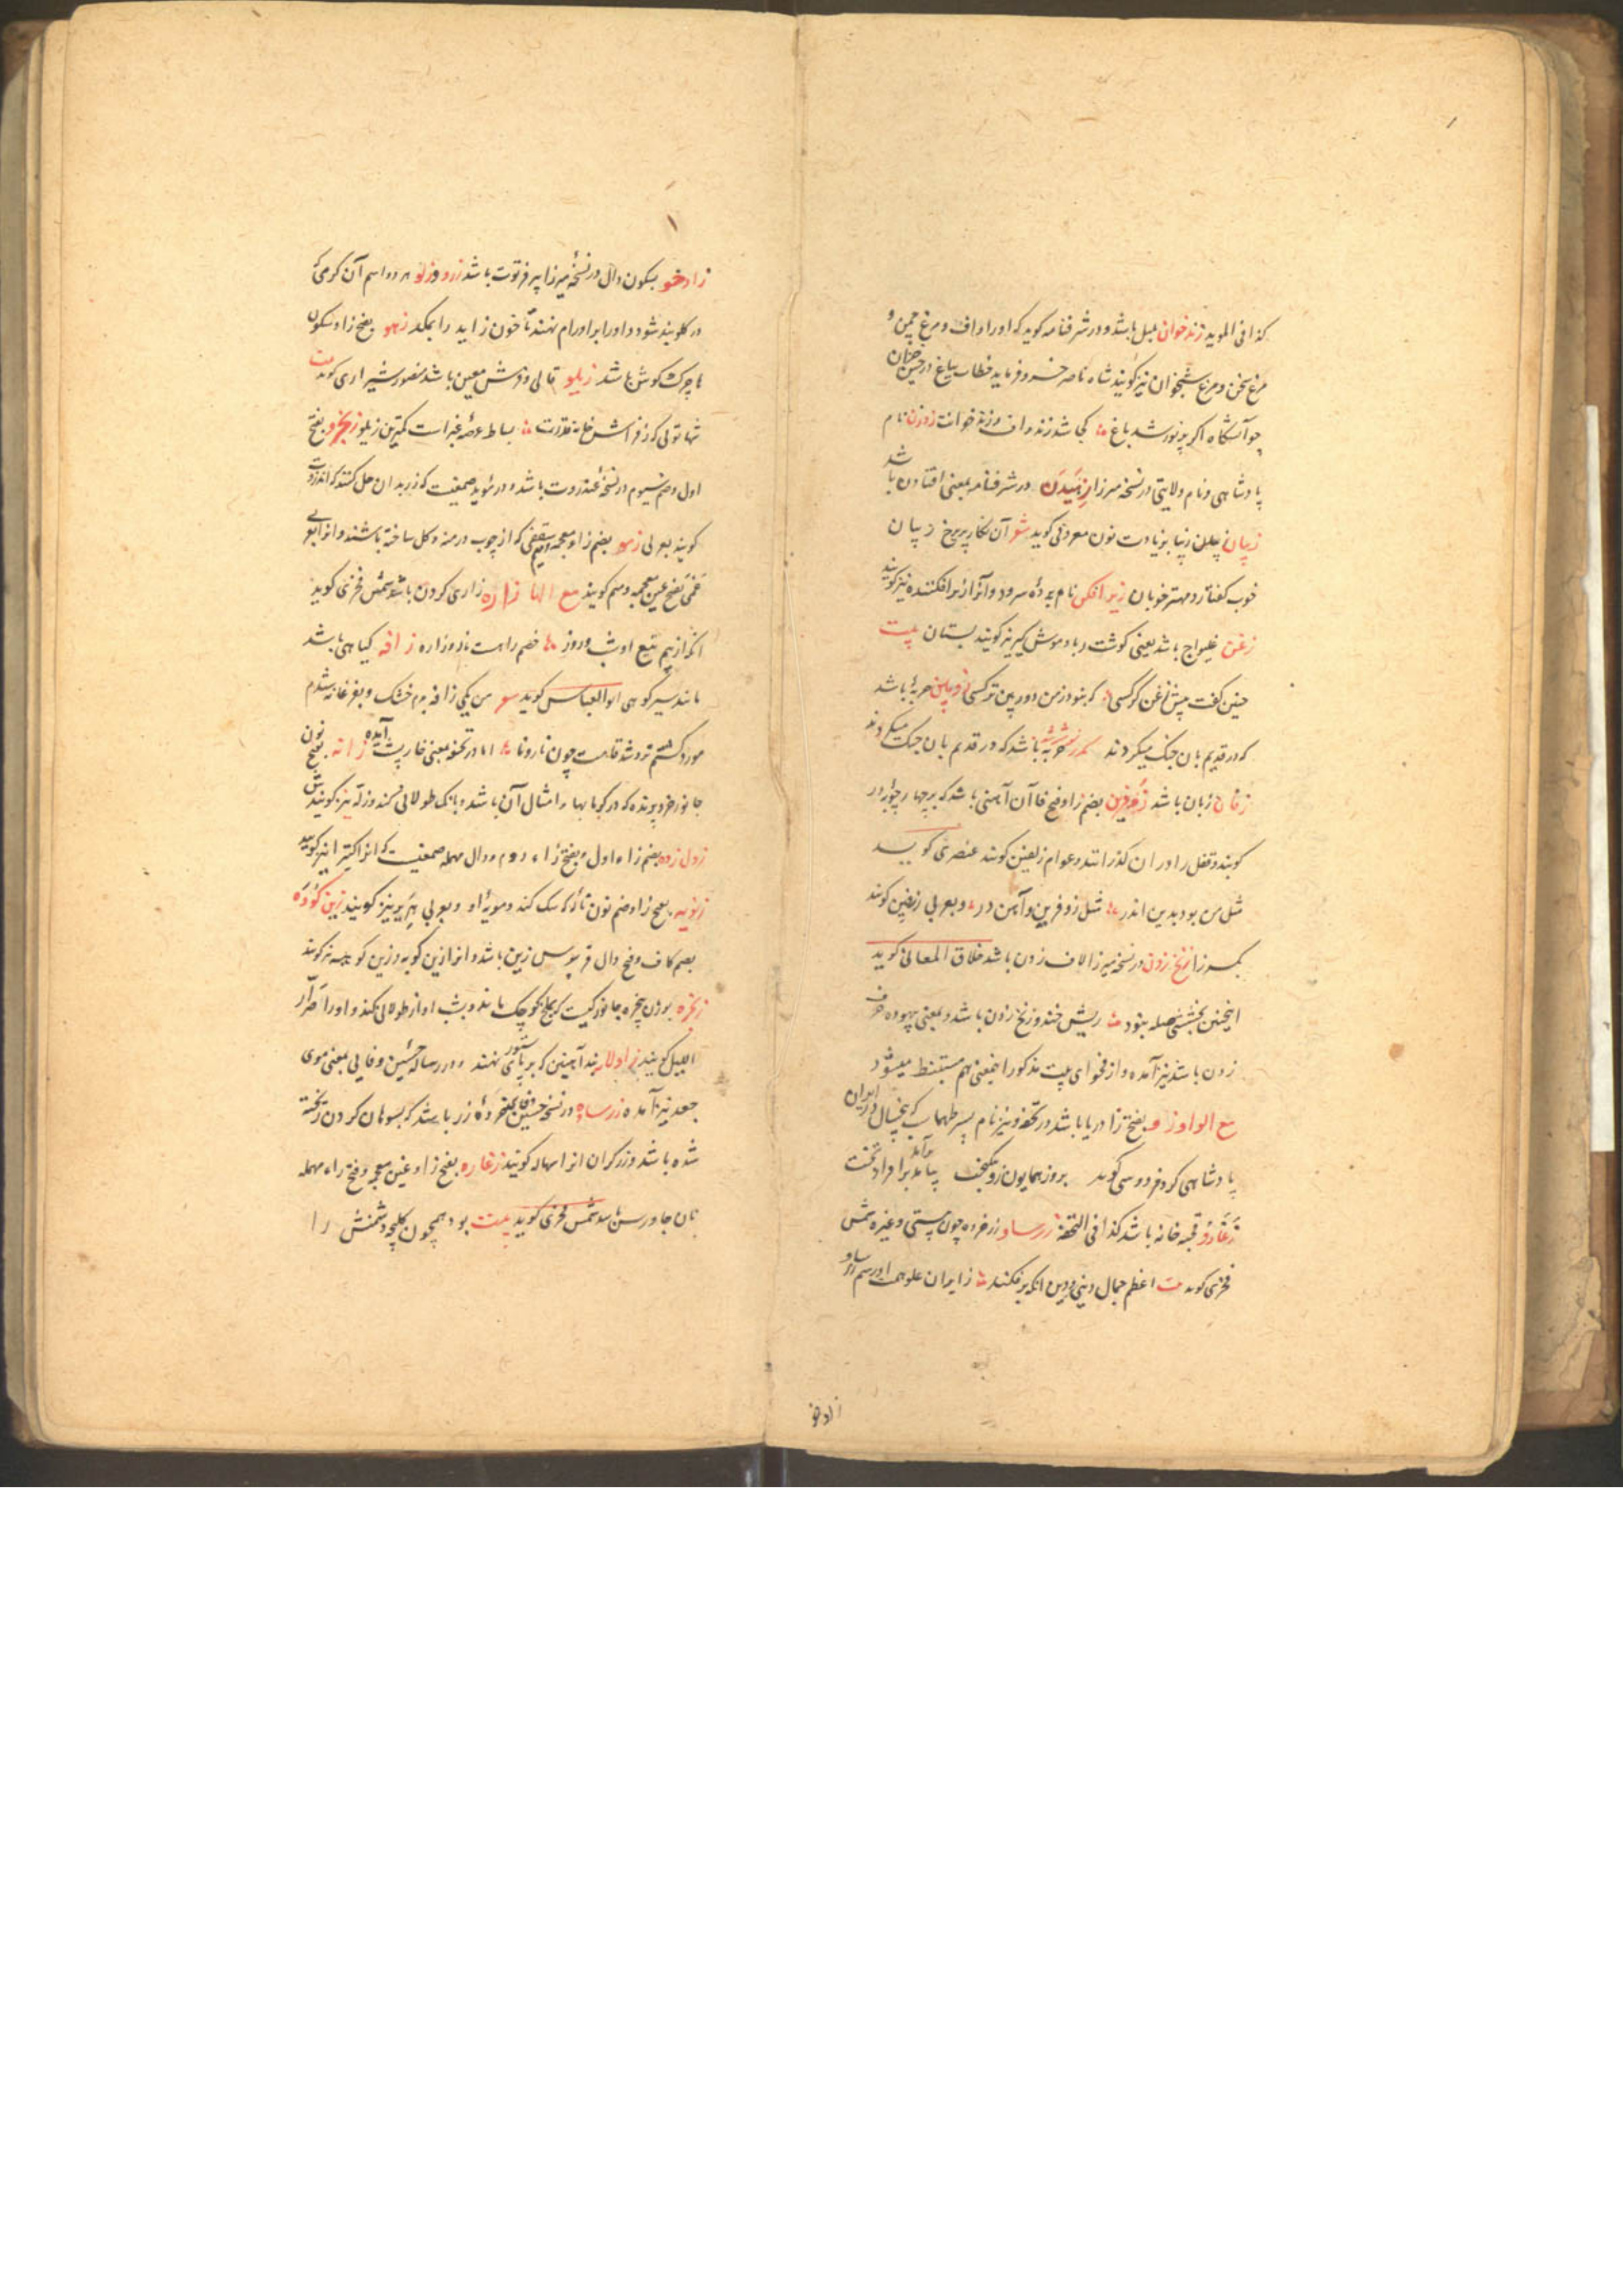 کذا فی الموید زندخوان بلبل باشد و در شرفنامه کوید که اورا واف و مرغ چمن و
مرغ سخن و مرغ شبخوان نیز کویند شاه ناصر خسرو فرماید خطاب بباغ در حین خزان
چو آتشکاه اکر پرنور شد باغ کجا شد زند واف و زند خوانت زوزن نام
پادشاهی و نام ولایتی در نسخه میرزا زئیدن در شرفنامه بمعنی افتادن باشد
زیبان زیبا بزیادت نون معروفی کوید شعر آن نکار پریرخ زیبان
خوب کفتار و مهتر خوبان زیرافکن نام پردهٔ سرود و آنرا زیرافکنده نیز کویند
زغن غلیواج باشد یعنی کوشت ربا و موش کیر نیز کویند بستان بیت
چنین کفت پیش زغن کرکسی که نبود ز من دوربین تر کسی زوپین حربهٔ باشد
که در قدیم بان جنک میکردند حربه باشد که در قدیم بان جنک میکردند
زفان زبان باشد زفرین بضم زا و فتح فا آن آهنی باشد که بر چهارچوبه در
کوبند و قفل را در ان کذرانند و عوام زلفین کویند عنصری کوید
مثل من بود بدین اندر مثل زوفرین و آهن در و بعربی زرفین کویند
بکسر زا زنخ زدن در نسخه میرزا لاف زدن باشد خلاق المعانی کوید
اینچنین بخششی صله نبود ریش خند و زنخ زدن باشد و بمعنی بیهوده حرف
زدن باشد نیز آمده و از فحوای بیت مذکور اینمعنی هم مستنبط میشود
مع الواو زو بفتح زا دریا باشد در تحفه و نیز نام پسر طهماسب که پنجسال در ایران
پادشاهی کرد فردوسی کوید بروز همایون زو نیکبخت بیامد برآمد بر افراز تخت
زغارو قحبه خانه باشد کذا فی التحفة زرساو زر خرده چون پستی و غیره شمس
فخری کوید بیت اعظم جمال دینی و دین انکه برفکند ز ایران علو همت او رسم زرساو
زادخو
زادخو بسکون دال در نسخهٔ میرزا پیر فرتوت باشد زرو و زلو هر دو اسم آن کرمی که
در کلو بند شود و اورا بر اورام نهند تا خون زاید را بمکد زهو بفتح زا و سکون
ها چرک کوش باشد زیلو قالی و فرش معین باشد منصور شیرازی کوید بیت
شها توئی که ز فراش خانه قدرت بساط عرصهٔ غبراست کمترین زیلو زنجرو بفتح
اول و ضم سیوم در نسخه عنزروت باشد و در موید صمغیست که زر بدان حل کنند که انزروت
کویند بعربی زمو بضم زا معجمه و میم سقفی که از چوب و رمنه و کل ساخته باشند و انرا بعربی
غمی بفتح غین معجمه و میم کویند مع الها زاره زاری کردن باشد شمس فخری کوید
انکه از بیم تیغ او شب و روز خصم راهست ناله و زاره زافه کیاهی باشد
مانند سیر کوهی ابوالعباس کوید شعر من یکی زافه بدم خشک و بفرغانه شدم
مورد کشتم تر و شد قامت چون نارونا اما در تحفه بمعنی خارپشت آمده زانه بفتح نون
جانور خرد پرنده که در کرمابها و امثال آن باشد و بانک طولانی کند و زله نیز کویندش
زدل زده بضم زاء اول و بفتح زاء دوم و دال مهمله صمغیست که انرا کتیرا نیز کویند
زنویه بفتح زا و ضم نون نالهٔ سک کند و مویهٔ او و بعربی هریر نیز کویند زین کوده
بضم کاف و فتح دال قربوس زین باشد و انرا زین کوبه و زین کوهه نیز کویند
زنجره بوزن پنجره جانورکیست که بملخ کوچک ماند و بشب اواز طولانی کند و اورا صرار
اللیل کویند زاولانه بند آهنین که بر پای ستور نهند و در رسالهٔ حسین وفایی بمعنی موی
جعد نیز آمده زرساوه در نسخه حسین وفائی خردهٔ زر باشد که بسوهان کردن ریخته
شده باشد و زرکران انرا سهاله کویند زغاره بفتح زا و غین معجمه و فتح راء مهمله
نان جاورس باشد شمس فخری کوید بیت بود همچون کلیچه دشمنش را